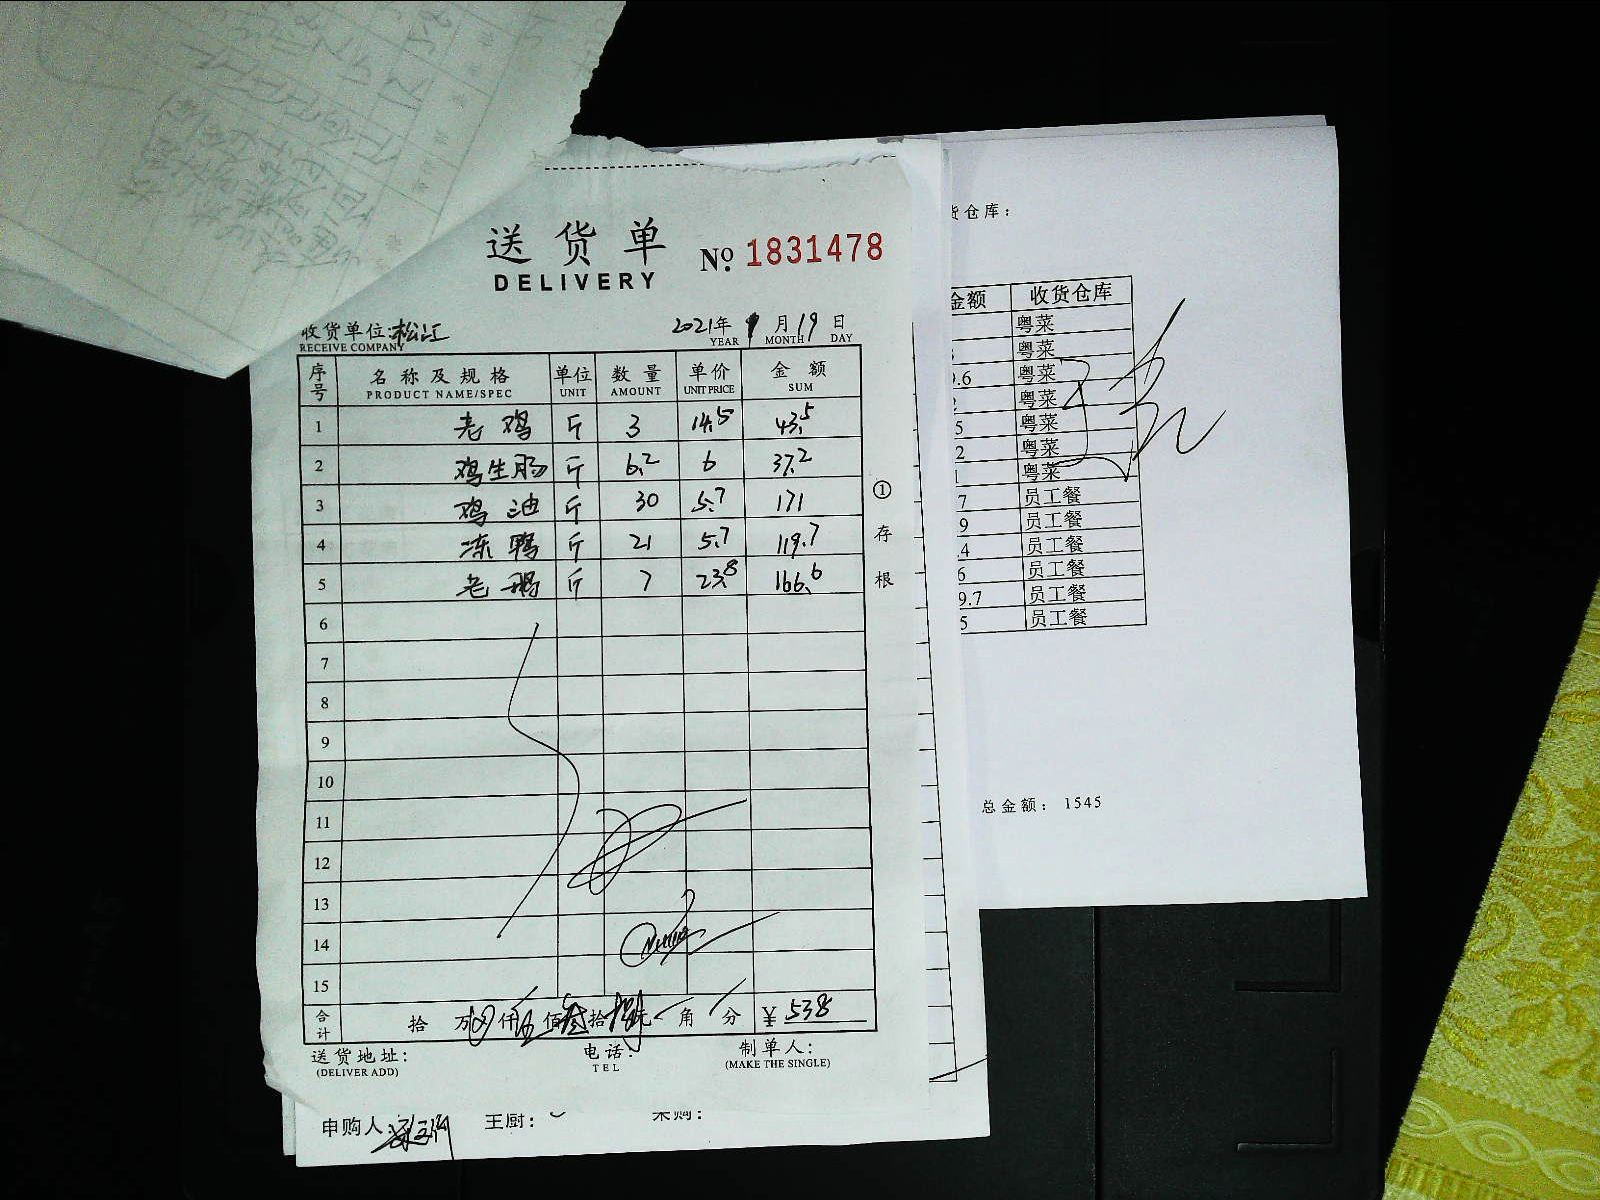 送货单
DELIVERY
№ 1831478
收货单位:松江 2021年 9月19日
RECEIVE COMPANY YEAR MONTH DAY
序号 名称及规格 单位 数量 单价 金额
PRODUCT NAME/SPEC UNIT AMOUNT UNIT PRICE SUM
1 老鸡 斤 3 14.5 43.5
2 鸡生肠 斤 6.2 6 37.2
3 鸡油 斤 30 5.7 171
4 冻鸭 斤 21 5.7 119.7
5 老鹅 斤 7 23.8 166.6
6
7
8
9
10
11
12
13
14
15
合计 拾 万 仟伍佰叁拾捌元 角 分 ¥ 538
①存根
送货地址: 电话: 制单人:
(DELIVER ADD) TEL (MAKE THE SINGLE)
申购人: 王厨: 采购:
货仓库:
金额 收货仓库
粤菜
粤菜
9.6 粤菜
2 粤菜
5 粤菜
2 粤菜
1 粤菜
7 员工餐
9 员工餐
.4 员工餐
6 员工餐
9.7 员工餐
5 员工餐
总金额: 1545